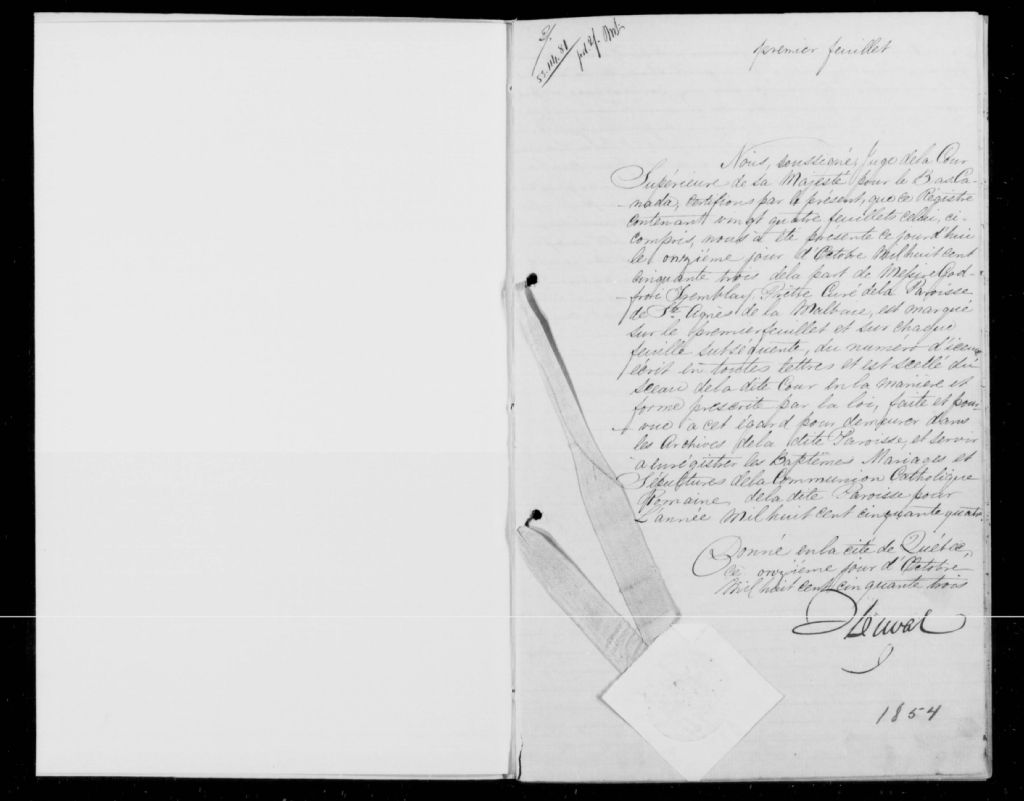 premier feuillet
Nous, soussigné, Juge de la Cour
Supérieure de sa Majesté pour le Bas Ca-
nada, certifions par le présent, que ce Régistre
contenant vingt quatre feuillets celui, ci-
compris, nous a été présenté ce jourd'hui
le onzième jour d'Octobre Mil huit cent
cinquante trois de la part de Messire God-
froi Tremblay Prêtre Curé de la Paroisse
de Ste Agnès de la Malbaie, est marqué
sur le premier feuillet et sur chaque
feuille subséquente, du numéro d'iceux
écrit en toutes lettres et est scellé du
sceau de la dite Cour en la manière et
forme prescrite par la loi, faite et pour-
vue a cet égard pour demeurer dans
les Archives de la dite Paroisse, et servir
a enrégistrer les Baptêmes Mariages et
Sépultures de la Communion Catholique
Romaine, de la dite Paroisse pour
L'année Mil huit cent cinquante quatre.
Donné en la cité de Québec,
ce onzième jour d'Octobre
Mil huit cent cinquante trois
Duval
1854